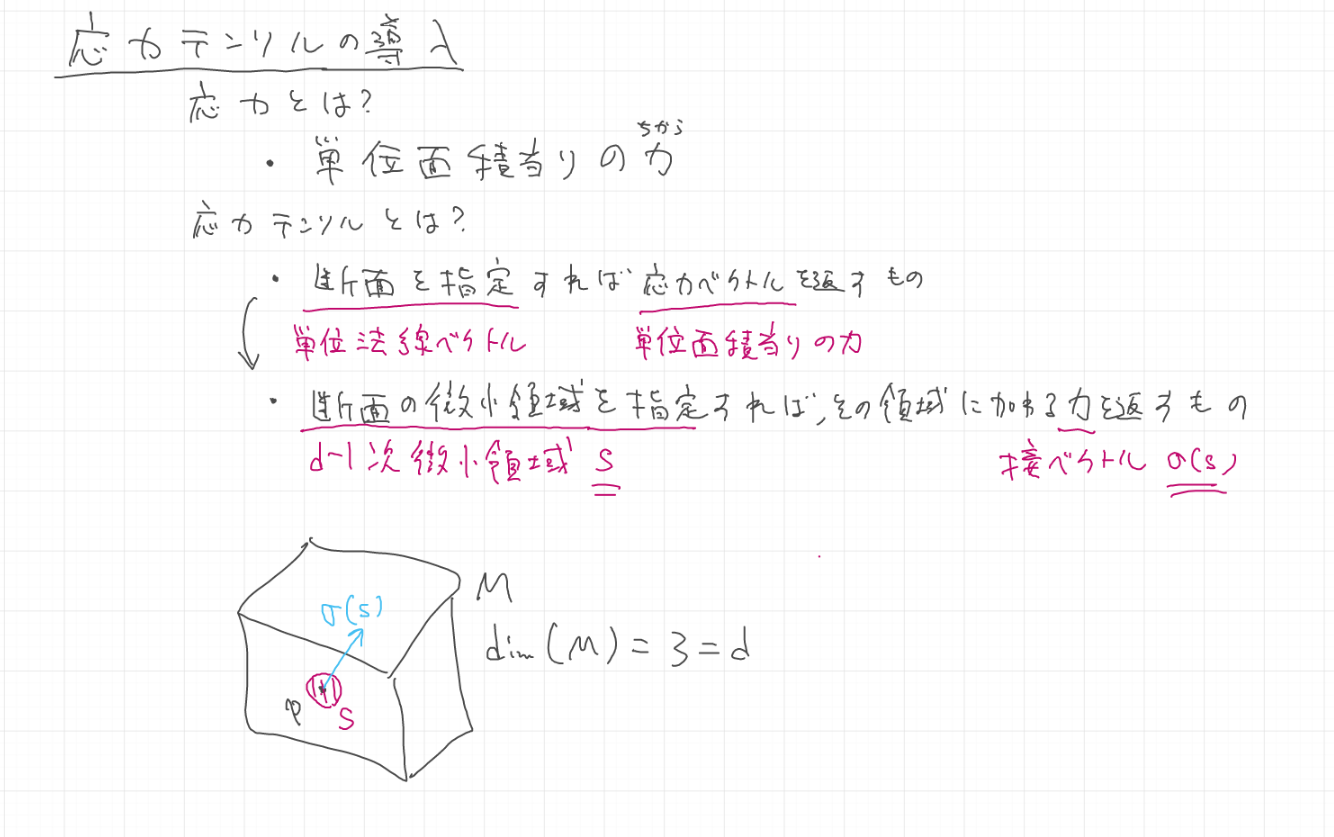 応力テンソルの導入
応力とは?
・単位面積当りの力
ちから
応力テンソルとは?
・断面を指定すれば応力ベクトルを返すもの
単位法線ベクトル 単位面積当りの力
・断面の微小領域を指定すれば,その領域に加わる力を返すもの
d-1次微小領域 S
接ベクトル σ(s)
M
σ(s)
dim(M)=3=d
p
S